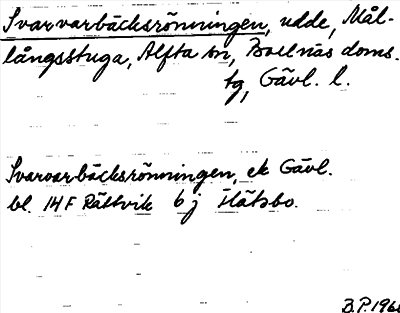 Svarvarbäcksrönningen, udde, Mål-
långsstuga, Alfta sn, Bollnäs doms.
tg, Gävl. l.
Svarvarbäcksrönningen, ek Gävl.
bl. 14F Rättvik 6j
B.P. 196